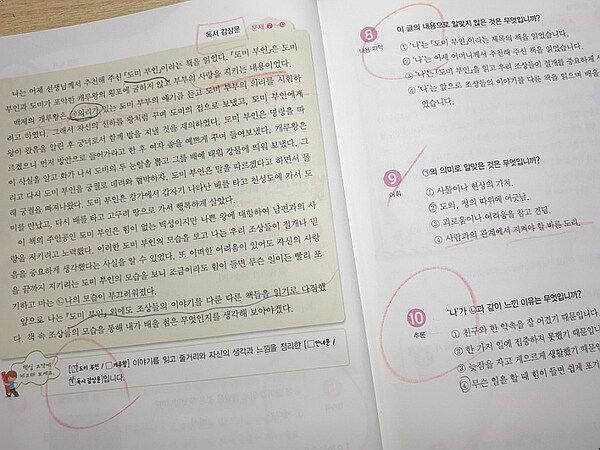 독서 감상문 문제 7~10
나는 어제 선생님께서 추천해 주신 「도미 부인」이라는 책을 읽었다. 「도미 부인」은 도미
부인과 도미가 포악한 개루왕의 횡포에 굴하지 않고 부부의 사랑을 지키는 내용이었다.
백제의 개루왕은 ㉠의리가 있는 도미 부부의 얘기를 듣고 도미 부부의 의리를 시험하
려고 하였다. 그래서 자신의 신하를 왕처럼 꾸며 도미의 집으로 보냈고, 도미 부인에게
왕이 왔음을 알린 후 궁녀로서 함께 밤을 지낼 것을 제의하였다. 도미 부인은 명령을 따
르겠으니 먼저 방안으로 들어가라고 한 후 여자 종을 예쁘게 꾸며 들여보냈다. 개루왕은
이 사실을 알고 화가 나서 도미의 두 눈알을 뽑고 그를 배에 태워 강물에 띄워 보냈다. 그
리고 다시 도미 부인을 궁궐로 데려와 협박하자, 도미 부인은 말을 따르겠다고 하면서 몰
래 궁궐을 빠져나왔다. 도미 부인은 강가에서 갑자기 나타난 배를 타고 천성도에 가서 도
미를 만났고, 다시 배를 타고 고구려 땅으로 가서 행복하게 살았다.
이 책의 주인공인 도미 부인은 힘이 없는 백성이지만 나쁜 왕에 대항하여 남편과의 사
랑을 지키려고 노력했다. 이러한 도미 부인의 모습을 보고 나는 우리 조상들이 절개나 믿
음을 중요하게 생각했다는 사실을 알 수 있었다. 또 어떠한 어려움이 있어도 자신의 사랑
을 끝까지 지키려는 도미 부인의 모습을 보니 조금이라도 힘이 들면 무슨 일이든 빨리 포
기하고 마는 ㉡나의 모습이 부끄러워졌다.
앞으로 나는 「도미 부인」 외에도 조상들의 이야기를 다룬 다른 책들을 읽기로 다짐했
다. 책 속 조상들의 모습을 통해 내가 배울 점은 무엇인지를 생각해 보아야겠다.
핵심 요약에
체크해 보세요
[☑도미 부인 / □개루왕] 이야기를 읽고 줄거리와 자신의 생각과 느낌을 정리한 [□안내문 /
☑독서 감상문]입니다.
8 이 글의 내용으로 알맞지 않은 것은 무엇입니까?
내용 파악
① '나'는 「도미 부인」이라는 제목의 책을 읽었습니다.
② '나'는 어제 어머니께서 추천해 주신 책을 읽었습니다.
③ '나'는 「도미 부인」을 읽고 우리 조상들이 절개를 중요하게
④ '나'는 앞으로 조상들의 이야기를 다룬 책을 읽으며 배울
였습니다.
9 ㉠의 의미로 알맞은 것은 무엇입니까?
어휘
① 사물이나 현상의 가치.
② 도의, 정의 따위에 어긋남.
③ 괴로움이나 어려움을 참고 견딤.
④ 사람과의 관계에서 지켜야 할 바른 도리.
10 '나'가 ㉡과 같이 느낀 이유는 무엇입니까?
추론
① 친구와 한 약속을 잘 어겼기 때문입니다.
② 한 가지 일에 집중하지 못했기 때문입니다
③ 늦잠을 자고 게으르게 생활했기 때문입
④ 무슨 일을 할 때 힘이 들면 쉽게 포기